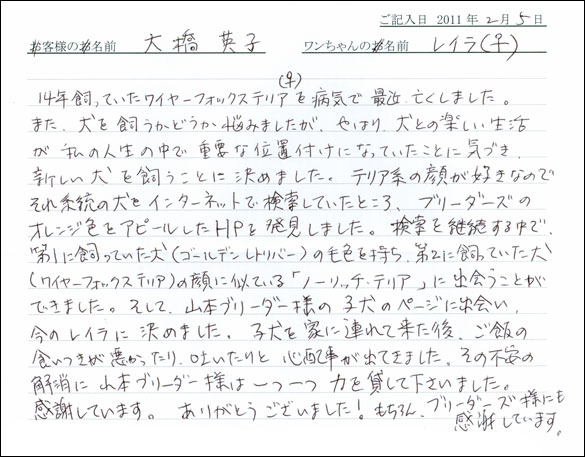 ご記入日 2011年2月5日
お客様のお名前 大橋 英子 ワンちゃんのお名前 レイラ(♀)
(♀)
14年飼っていたワイヤーフォックステリアを病気で最近亡くしました。
また、犬を飼うかどうか悩みましたが、やはり、犬との楽しい生活
が私の人生の中で重要な位置付けになっていたことに気づき、
新しい犬を飼うことに決めました。テリア系の顔が好きなので
それ系統の犬をインターネットで検索していたところ、ブリーダーズの
オレンジ色をアピールしたHPを発見しました。検索を継続する中で、
第1に飼っていた犬(ゴールデンレトリバー)の毛色を持ち、第2に飼っていた犬
(ワイヤーフォックステリア)の顔に似ている「ノーリッチ・テリア」に出会うことが
できました。そして、山本ブリーダー様の子犬のページに出会い、
今のレイラに決めました。子犬を家に連れて来た後、ご飯の
食いつきが悪かったり、吐いたりと心配事が出てきました。その不安の
解消に山本ブリーダー様は一つ一つ力を貸して下さいました。
感謝しています。ありがとうございました!もちろん、ブリーダーズ様にも
感謝しています。